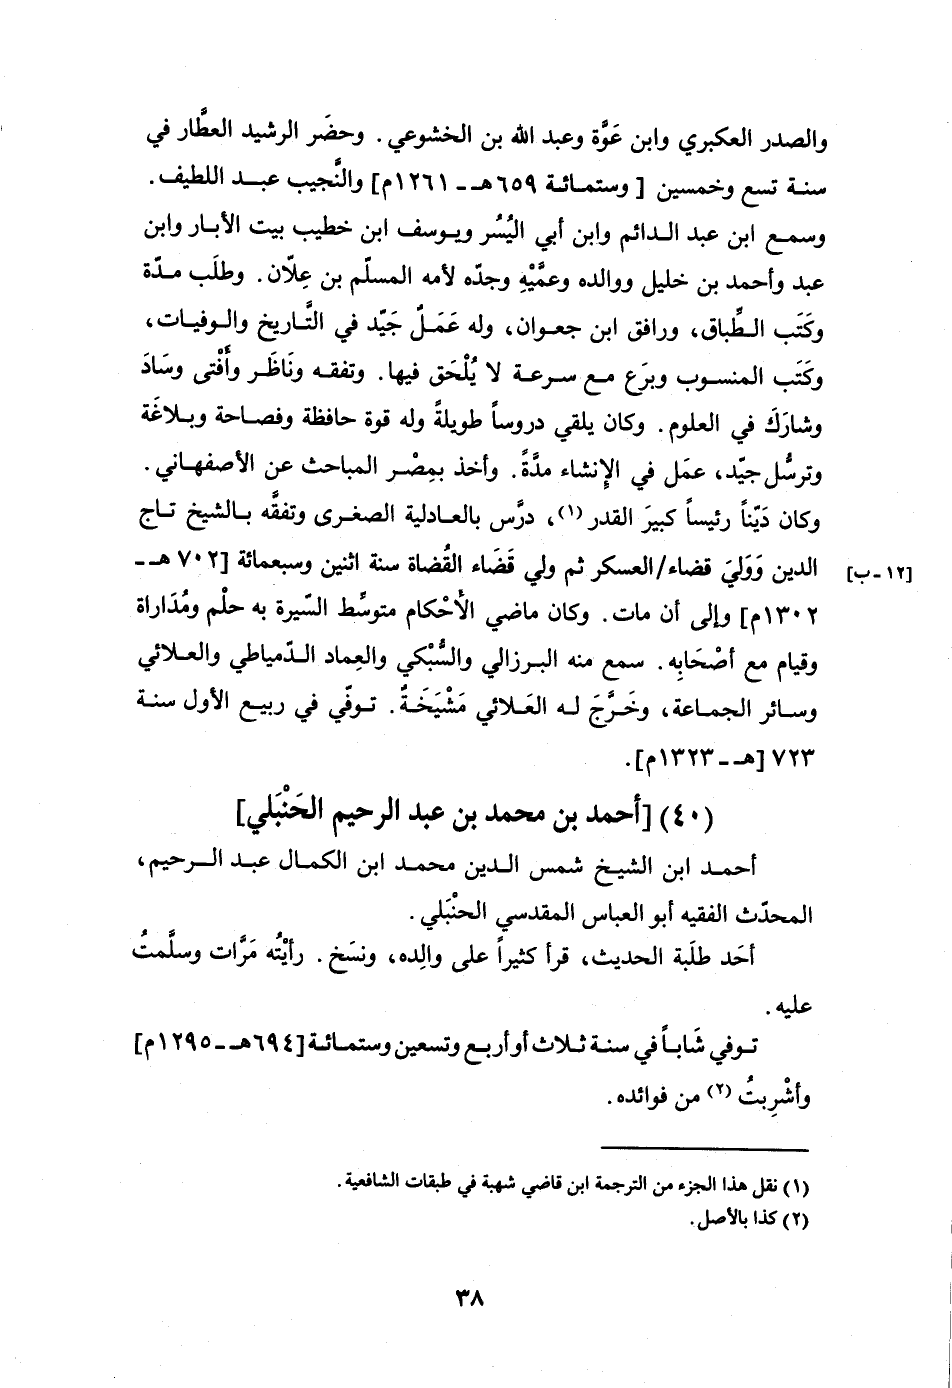 والصدر العكبري وابن عَوَّة وعبد الله بن الخشوعي. وحضَر الرشيد العطَّار في
سنة تسع وخمسين [ وستمائة ٦٥٩هـ - ١٢٦١م] والنَّجيب عبد اللطيف.
وسمع ابن عبد الدائم وابن أبي اليُسُر ويوسف ابن خطيب بيت الأبار وابن
عبد وأحمد بن خليل ووالده وعمَّيْهِ وجدّه لأمه المسلّم بن عِلّان. وطلَب مدّة
وكَتَب الطِّباق، ورافق ابن جعوان، وله عَمَلٌ جَيّد في التَّاريخ والوفيات،
وكَتَب المنسوب وبرَع مع سرعة لا يُلْحَق فيها. وتفقه ونَاظَر وأَفْتى وسَادَ
وشارَكَ في العلوم. وكان يلقي دروساً طويلةً وله قوة حافظة وفصاحة وبلاغَة
وترسُّل جيّد، عمَل في الإنشاء مدَّةً. وأخذ بمِصْر المباحث عن الأصفهاني.
وكان دَيّناً رئيساً كبيرَ القدر (١)، درَّس بالعادلية الصغرى وتفقَّه بالشيخ تاج
الدين وَوَليَ قضاء/العسكر ثم ولي قَضَاء القُضاة سنة اثنين وسبعمائة [٧٠٢ هـ - [١٢ - ب]
١٣٠٢م] وإلى أن مات. وكان ماضي الأَحْكام متوسِّط السّيرة به حلْم ومُدَاراة
وقيام مع أصْحَابِه. سمع منه البرزالي والسُّبْكي والعِماد الدّمياطي والعلائي
وسائر الجماعة، وخَرَّجَ له العَلائي مَشْيَخَةٌ. توفّي في ربيع الأول سنة
٧٢٣ [هـ - ١٣٢٣م].
(٤٠) [أحمد بن محمد بن عبد الرحيم الحَنْبَلي]
أحمد ابن الشيخ شمس الدين محمد ابن الكمال عبد الرحيم،
المحدّث الفقيه أبو العباس المقدسي الحنْبَلي.
أحَد طلَبة الحديث، قرأ كثيراً على والِده، ونسَخ. رأيْتُه مَرَّات وسلَّمتُ
عليه.
توفي شَاباً في سنة ثلاث أو أربع وتسعين وستمائة [٦٩٤هـ - ١٢٩٥م]
وأشْرِبتُ (٢) من فوائده.
(١) نقل هذا الجزء من الترجمة ابن قاضي شهبة في طبقات الشافعية.
(٢) كذا بالأصل.
٣٨